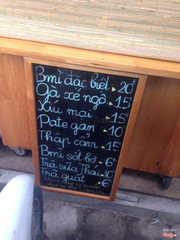 Bmì đặc biệt 20
Gà xé ngô 15
Xíu mại 15
Pate gan 10
Thập cẩm 15
Bmì sốt bơ 6
Trà sữa Thái 10
Trà quất 6